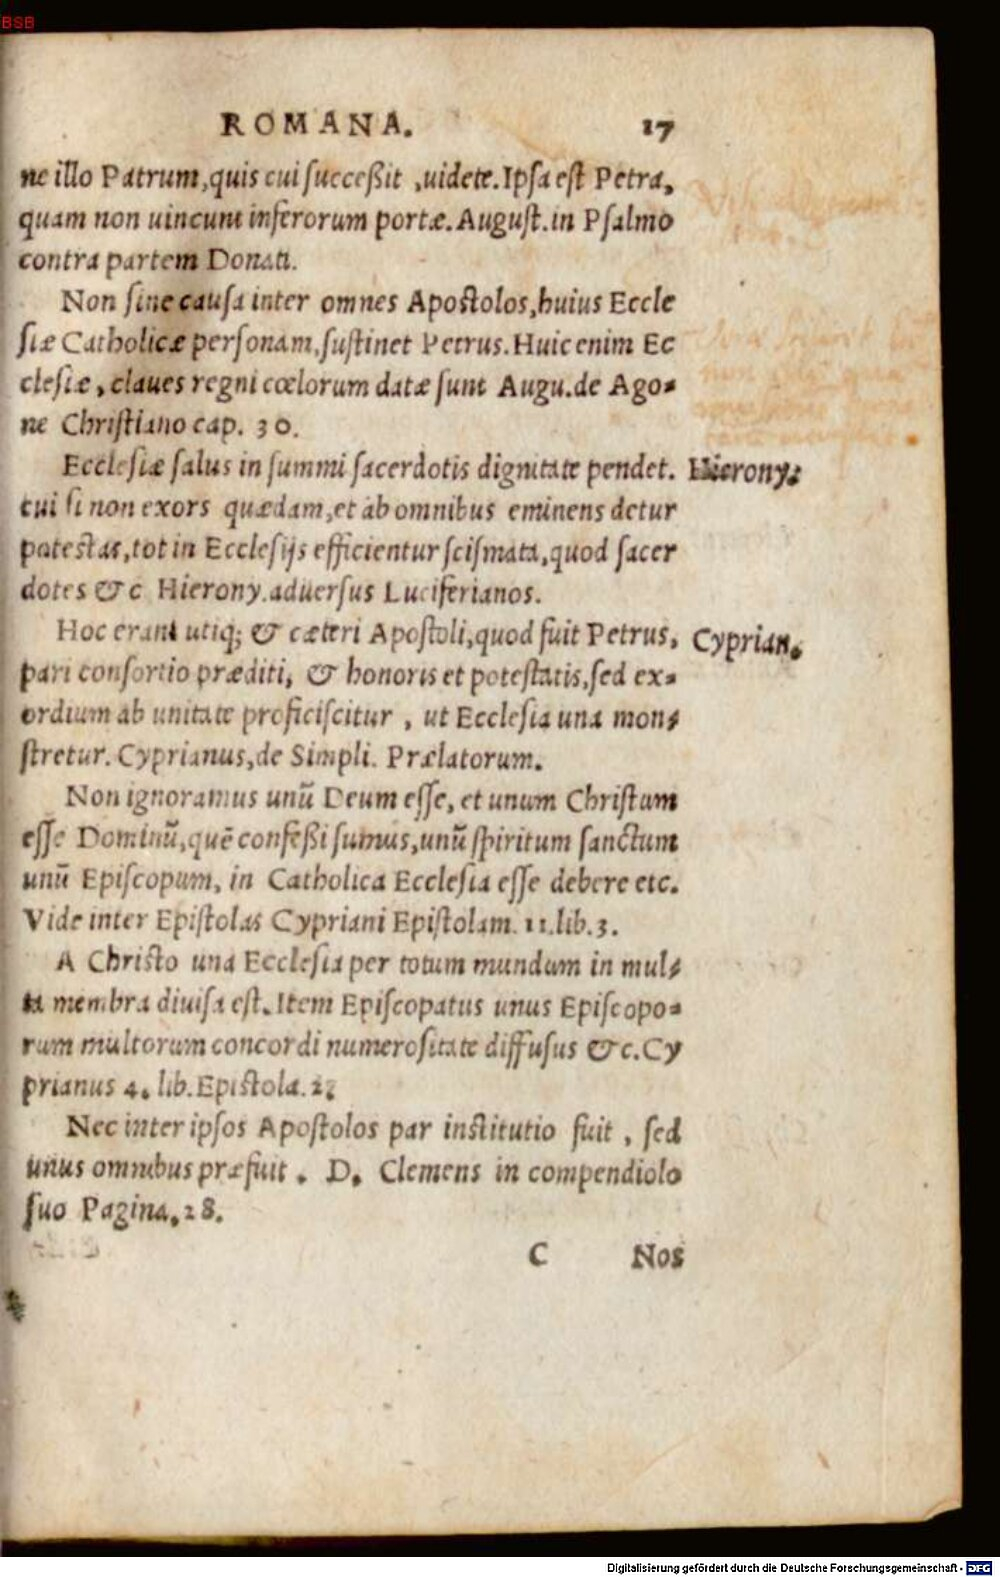 BSB
ROMANA. 17
ne illo Patrum,quis cui succeßit ,uidete.Ipsa est Petra,
quam non uincunt inferorum portæ.August.in Psalmo
contra partem Donati.
Non sine causa inter omnes Apostolos,huius Eccle
siæ Catholicæ personam,sustinet Petrus.Huic enim Ec
clesiæ, claues regni cœlorum datæ sunt Augu.de Ago-
ne Christiano cap. 30.
Ecclesiæ salus in summi sacerdotis dignitate pendet. Hierony:
cui si non exors quædam,et ab omnibus eminens detur
potestas,tot in Ecclesijs efficientur scismata,quod sacer
dotes &c Hierony.aduersus Luciferianos.
Hoc erant utiq; & cæteri Apostoli,quod fuit Petrus, Cyprian.
pari consortio præditi, & honoris et potestatis,sed ex-
ordium ab unitate proficiscitur , ut Ecclesia una mon-
stretur. Cyprianus,de Simpli. Prælatorum.
Non ignoramus unũ Deum esse, et unum Christum
esse Dominũ,quẽ confeßi sumus,unũ spiritum sanctum
unũ Episcopum, in Catholica Ecclesia esse debere etc.
Vide inter Epistolas Cypriani Epistolam. 11.lib.3.
A Christo una Ecclesia per totum mundum in mul-
ta membra diuisa est.Item Episcopatus unus Episcopo-
rum multorum concordi numerositate diffusus &c.Cy
prianus 4. lib.Epistola.2;
Nec inter ipsos Apostolos par institutio fuit , sed
unus omnibus præfuit . D. Clemens in compendiolo
suo Pagina.28.
C Nos
Digitalisierung gefördert durch die Deutsche Forschungsgemeinschaft - DFG